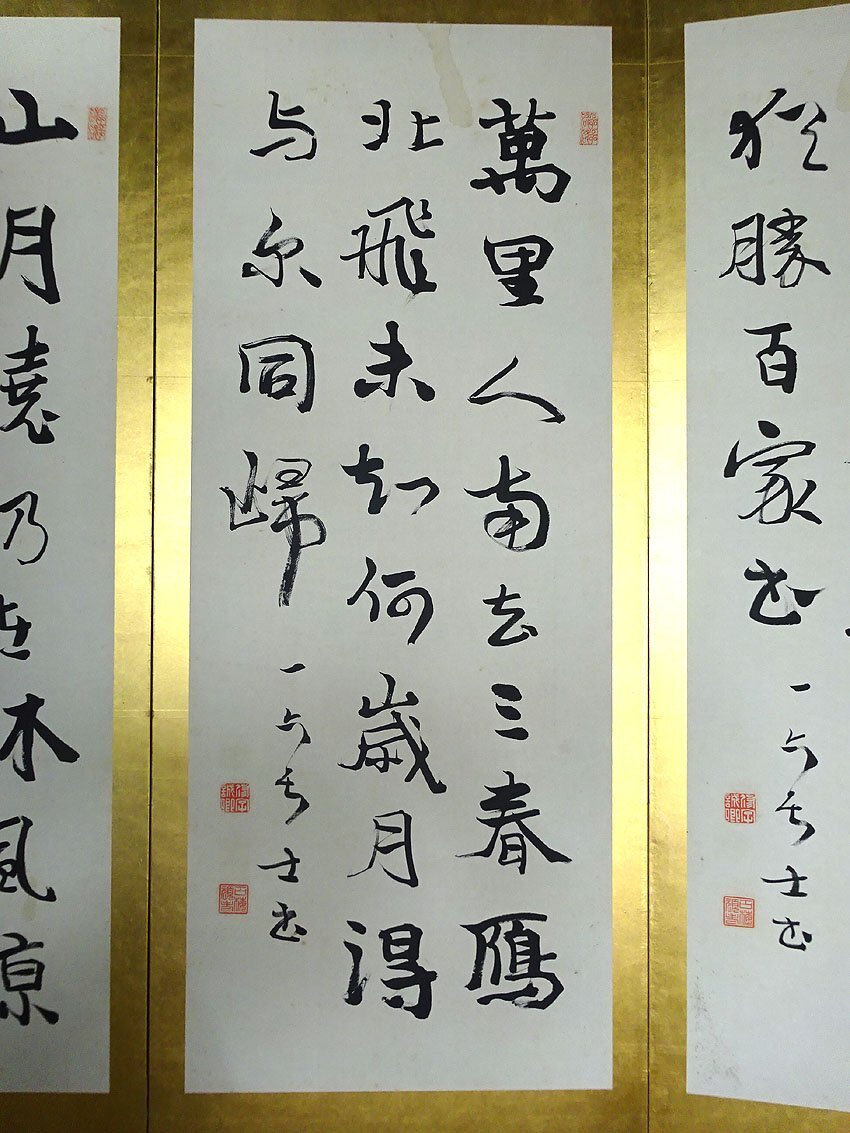 猶勝百家書
一六居士書
萬里人南去三春鴈
北飛未知何歲月得
与尔同歸
一六居士書
山月曉仍在林風涼